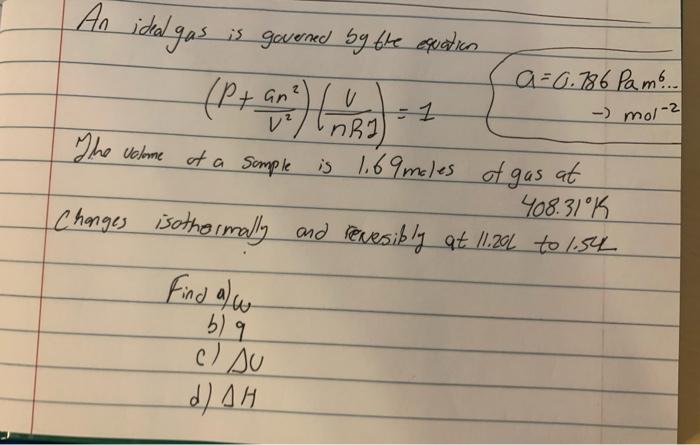 An ideal gas is governed by the equation
(P + an²/V²)(V/nRT) = 1
a = 0.786 Pa m⁶...
→ mol⁻²
The volume of a sample is 1.69 moles of gas at
408.31°K
Changes isothermally and revesibly at 11.20L to 1.54L
Find a) w
b) q
c) ΔU
d) ΔH